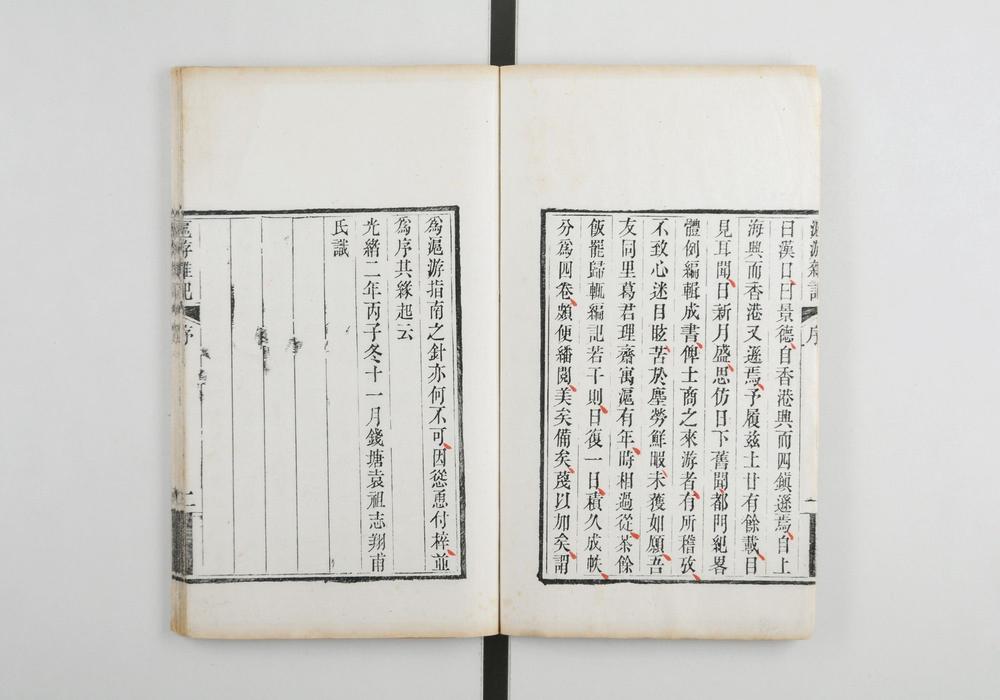 滬游雜記
序
曰漢口曰景德自香港興而四鎮遜焉自上
海興而香港又遜焉予履茲土廿有餘載目
見耳聞日新月盛思仿日下舊聞都門紀畧
體例編輯成書俾士商之來游者有所稽攷
不致心迷目眩苦於塵勞鮮暇未獲如願吾
友同里葛君理齋寓滬有年時相過從茶餘
飯罷歸輒編記若干則日復一日積久成帙
分為四卷頗便繙閱美矣備矣蔑以加矣謂
為滬游指南之針亦何不可因慫恿付梓並
為序其緣起云
光緒二年丙子冬十一月錢塘袁祖志翔甫
氏識
滬游雜記
序
二